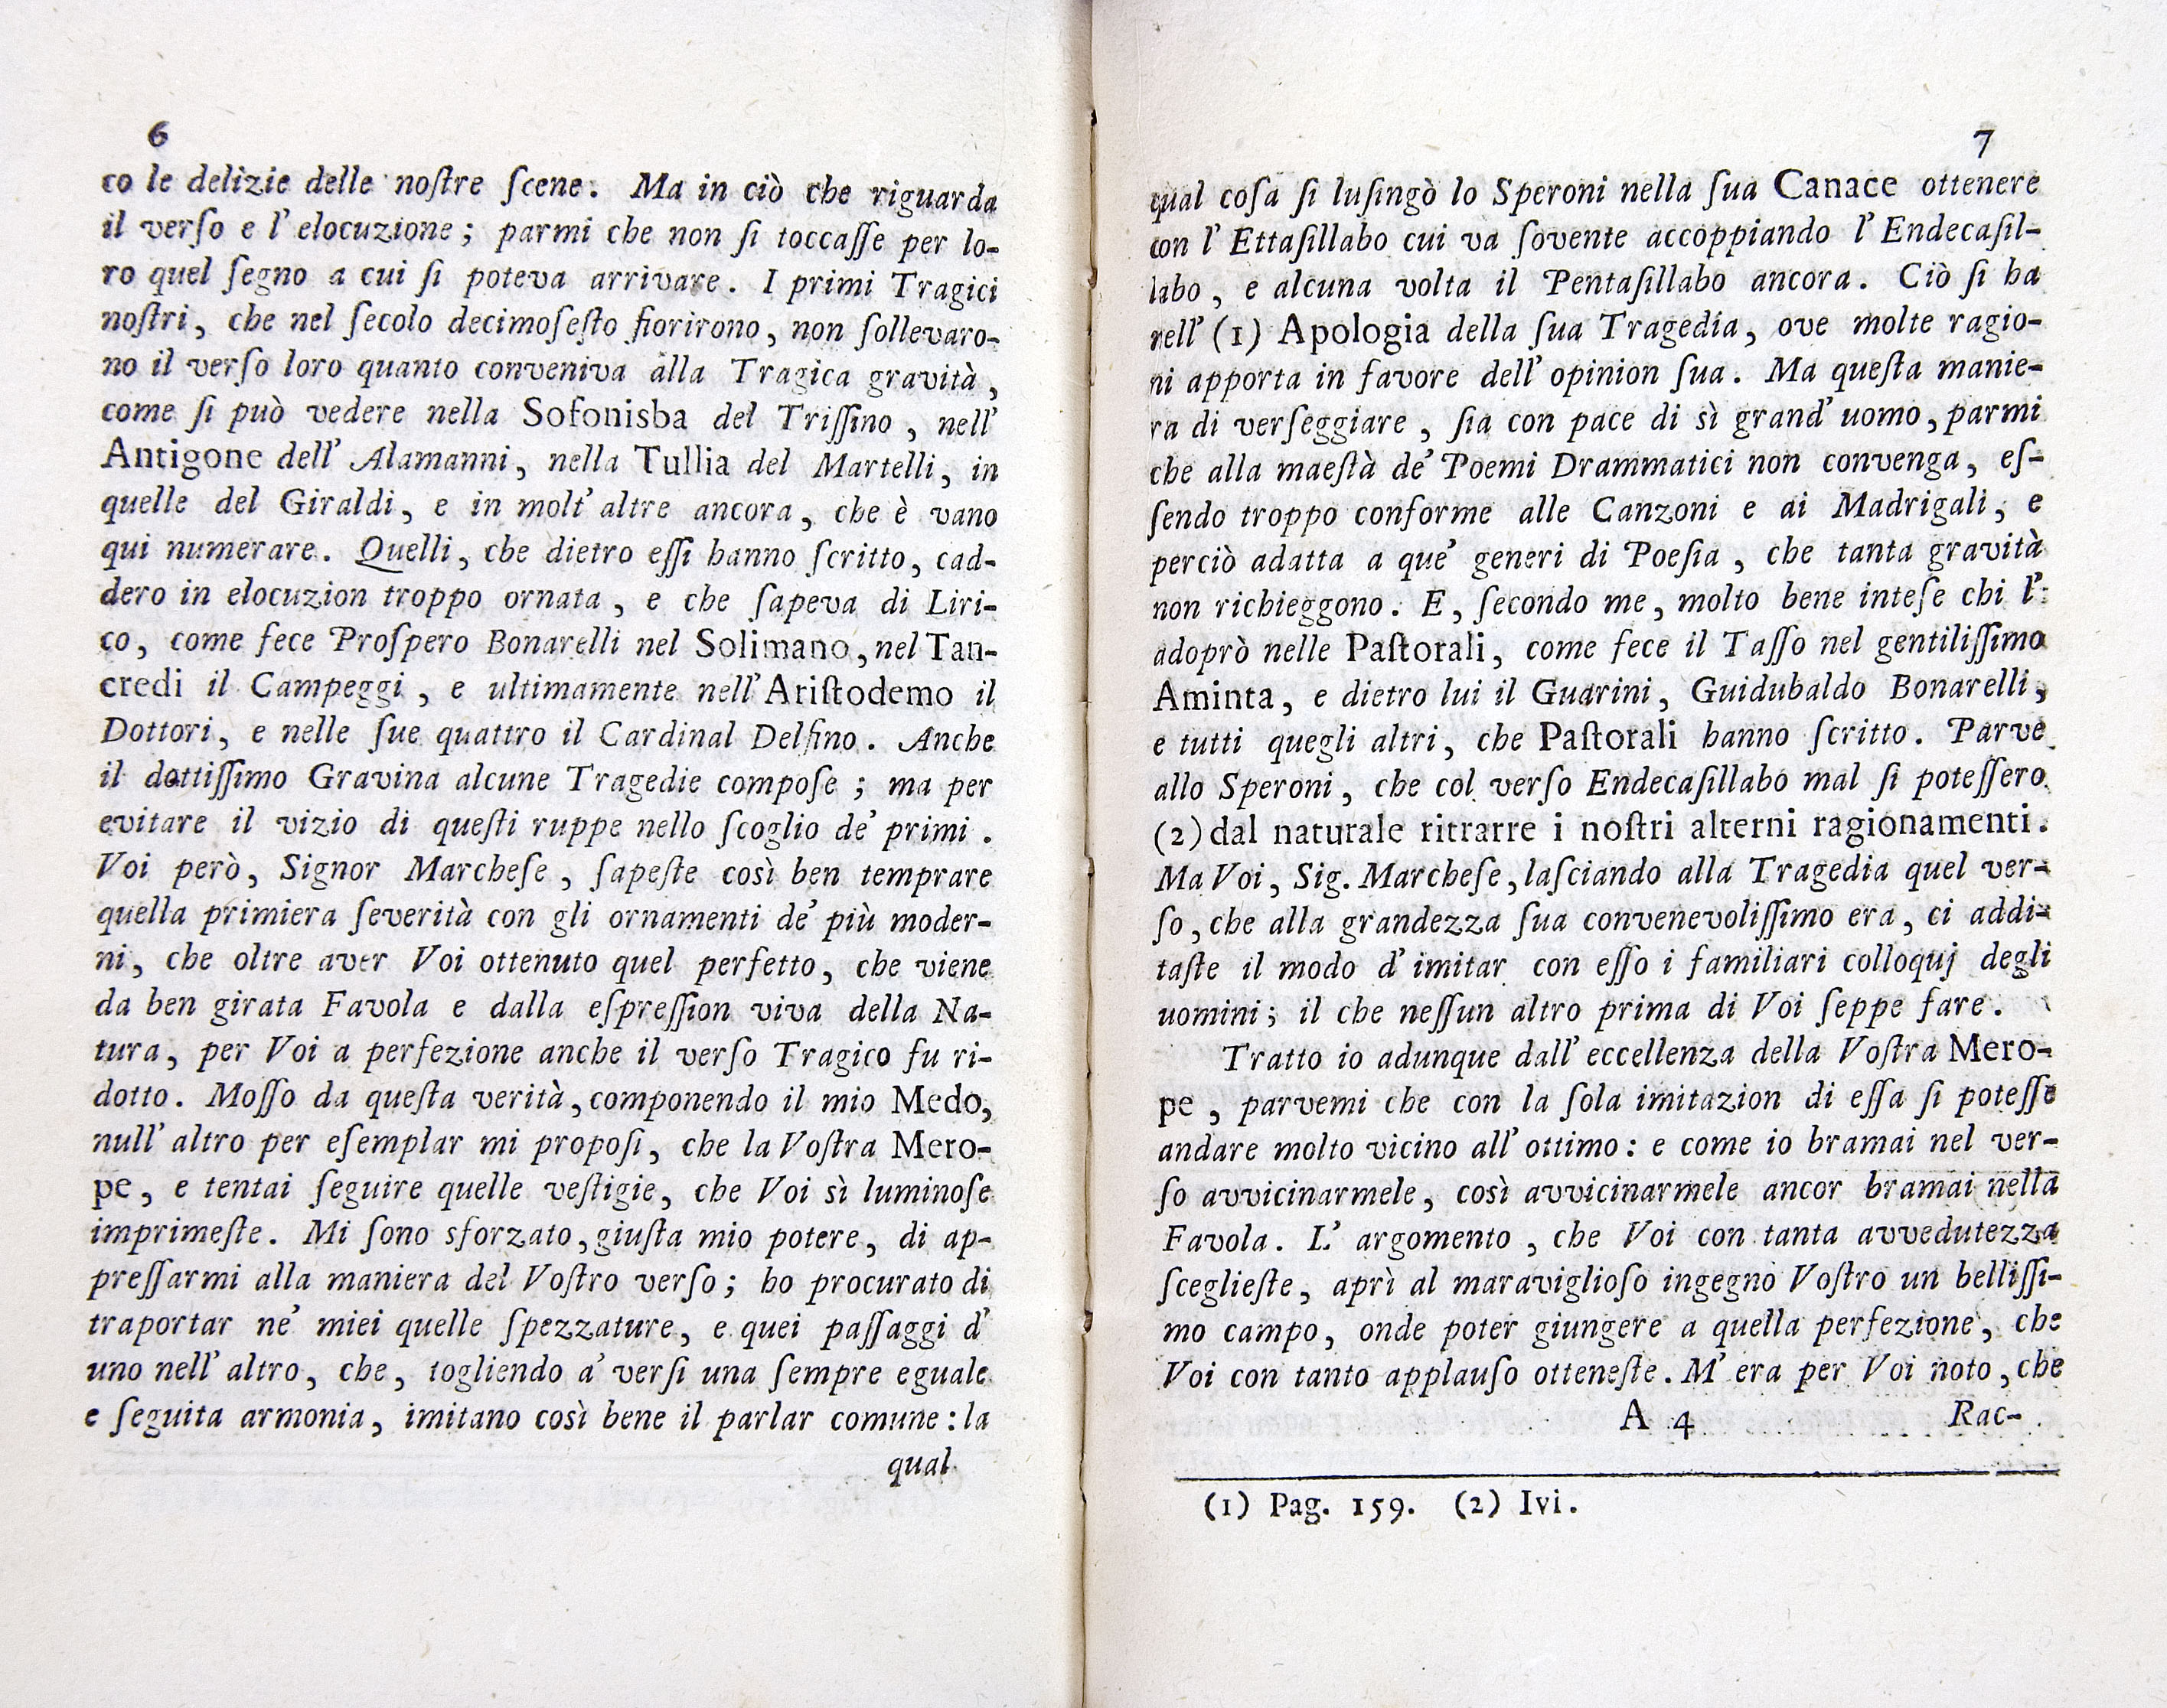 6
co le delizie delle noſtre ſcene. Ma in ciò che riguarda
il verſo e l' elocuzione; parmi che non ſi toccaſſe per lo-
ro quel ſegno a cui ſi poteva arrivare. I primi Tragici
noſtri, che nel ſecolo decimoſeſto fiorirono, non ſollevaro-
no il verſo loro quanto conveniva alla Tragica gravità,
come ſi può vedere nella Sofonisba del Triſſino, nell'
Antigone dell' Alamanni, nella Tullia del Martelli, in
quelle del Giraldi, e in molt' altre ancora, che è vano
qui numerare. Quelli, che dietro eſſi hanno ſcritto, cad-
dero in elocuzion troppo ornata, e che ſapeva di Liri-
co, come fece Proſpero Bonarelli nel Solimano, nel Tan-
credi il Campeggi, e ultimamente nell' Ariſtodemo il
Dottori, e nelle ſue quattro il Cardinal Delfino. Anche
il dottiſſimo Gravina alcune Tragedie compoſe; ma per
evitare il vizio di queſti ruppe nello ſcoglio de' primi.
Voi però, Signor Marcheſe, ſapeſte così ben temprare
quella primiera ſeverità con gli ornamenti de' più moder-
ni, che oltre aver Voi ottenuto quel perfetto, che viene
da ben girata Favola e dalla eſpreſſion viva della Na-
tura, per Voi a perfezione anche il verſo Tragico fu ri-
dotto. Moſſo da queſta verità, componendo il mio Medo,
null' altro per eſemplar mi propoſi, che la Voſtra Mero-
pe, e tentai ſeguire quelle veſtigie, che Voi sì luminoſe
imprimeſte. Mi ſono sforzato, giuſta mio potere, di ap-
preſſarmi alla maniera del Voſtro verſo; ho procurato di
traportar ne' miei quelle ſpezzature, e quei paſſaggi d'
uno nell' altro, che, togliendo a' verſi una ſempre eguale
e ſeguita armonia, imitano così bene il parlar comune: la
qual
7
qual coſa ſi luſingò lo Speroni nella ſua Canace ottenere
con l' Ettaſillabo cui va ſovente accoppiando l' Endecaſil-
labo, e alcuna volta il Pentaſillabo ancora. Ciò ſi ha
nell' (1) Apologia della ſua Tragedia, ove molte ragio-
ni apporta in favore dell' opinion ſua. Ma queſta manie-
ra di verſeggiare, ſia con pace di sì grand' uomo, parmi
che alla maeſtà de' Poemi Drammatici non convenga, eſ-
ſendo troppo conforme alle Canzoni e ai Madrigali, e
perciò adatta a que' generi di Poeſia, che tanta gravità
non richieggono. E, ſecondo me, molto bene inteſe chi l'
adoprò nelle Paſtorali, come fece il Taſſo nel gentiliſſimo
Aminta, e dietro lui il Guarini, Guidubaldo Bonarelli,
e tutti quegli altri, che Paſtorali hanno ſcritto. Parve
allo Speroni, che col verſo Endecaſillabo mal ſi poteſſero
(2) dal naturale ritrarre i noſtri alterni ragionamenti.
Ma Voi, Sig. Marcheſe, laſciando alla Tragedia quel ver-
ſo, che alla grandezza ſua convenevoliſſimo era, ci addi-
taſte il modo d' imitar con eſſo i familiari colloquj degli
uomini; il che neſſun altro prima di Voi ſeppe fare.
Tratto io adunque dall' eccellenza della Voſtra Mero-
pe, parvemi che con la ſola imitazion di eſſa ſi poteſſe
andare molto vicino all' ottimo: e come io bramai nel ver-
ſo avvicinarmele, così avvicinarmele ancor bramai nella
Favola. L' argomento, che Voi con tanta avvedutezza
ſceglieſte, aprì al maraviglioſo ingegno Voſtro un belliſſi-
mo campo, onde poter giungere a quella perfezione, che
Voi con tanto applauſo otteneſte. M' era per Voi noto, che
A 4 Rac-
(1) Pag. 159. (2) Ivi.